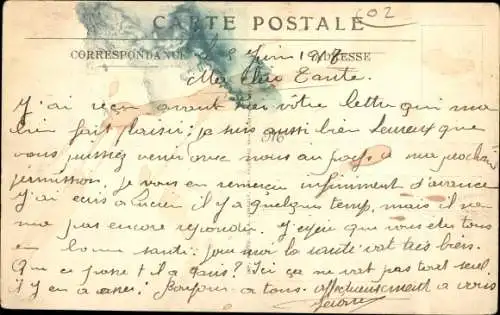 CARTE POSTALE
CORRESPONDANCE ADRESSE
202
8 Juin 1917
Ma Chère Tante.
J'ai reçu avant hier vôtre lettre qui m'a
bien fait plaisir; je suis aussi bien heureux que
vous puissiez venir avec nous au pays à ma prochaine
permission. Je vous en remercie infiniment d'avance
J'ai écris à Lucien il y a quelques temps, mais il ne
m'a pas encore répondu. J'espère que vous êtes tous
en bonne santé; pour moi la santé vat très bien.
Que ce passe t il a ? Ici ça ne vat pas tout seul.
il y en a assez! Bonjour à tous. affectueusement à vous